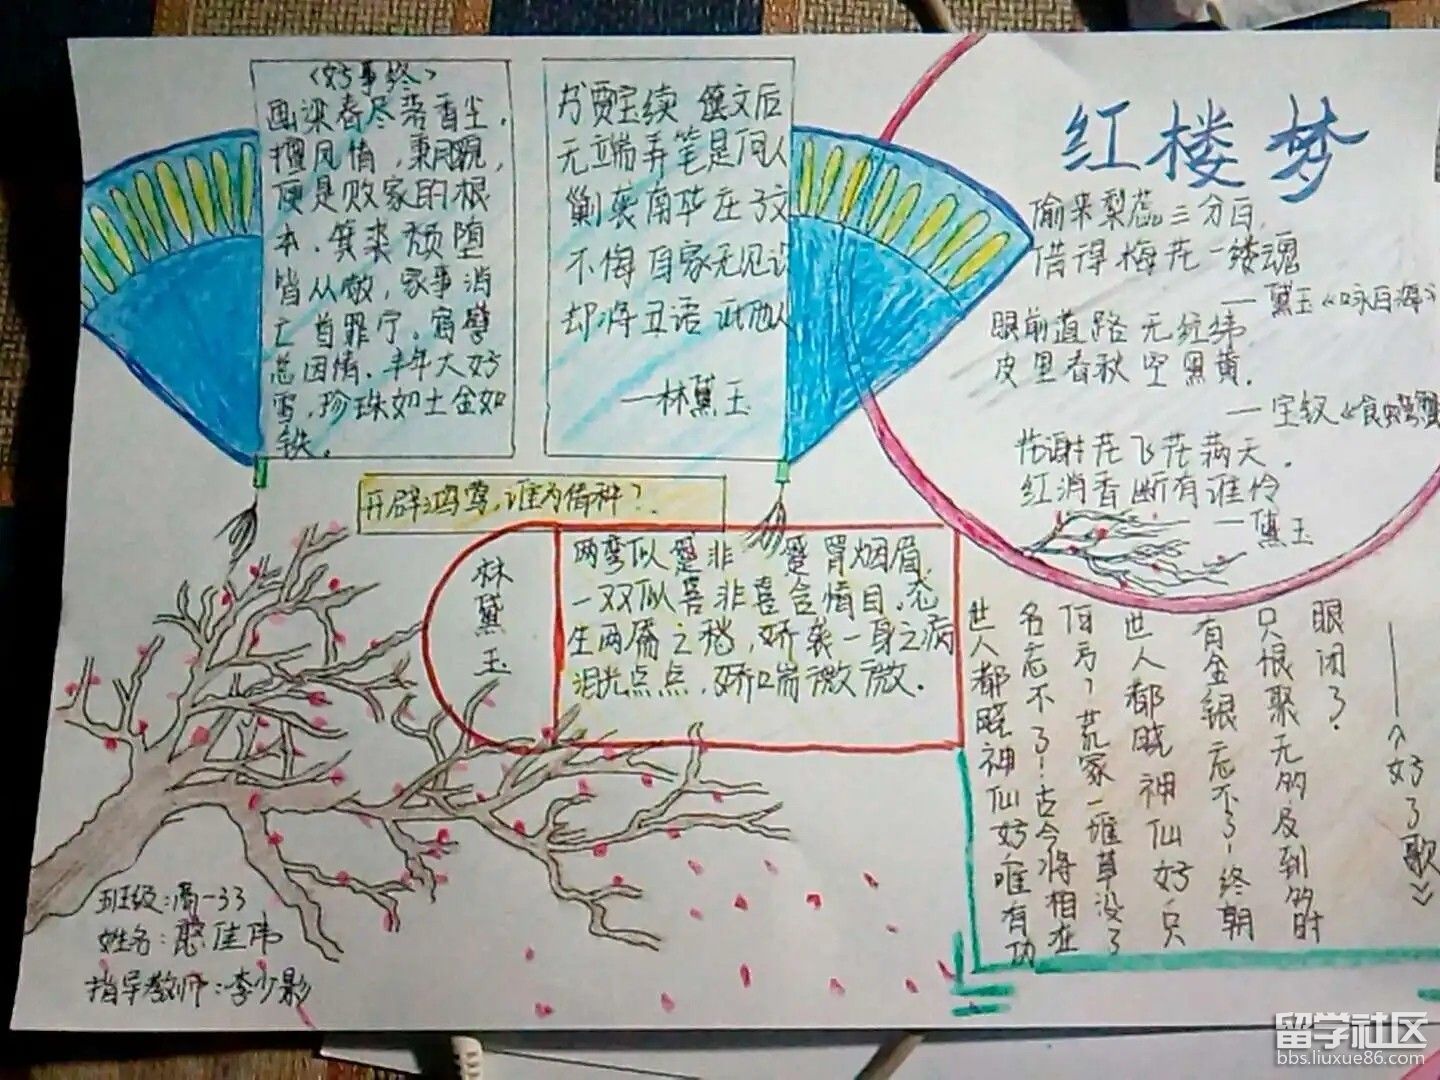 《好事终》
画梁春尽落香尘.
擅风情,秉月貌,
便是败家的根
本.箕裘颓堕
皆从敬,家事消
亡首罪宁.宿孽
总因情.丰年大好
雪,珍珠如土金如
铁.
为贾宝续 庄文后
无端弄笔是何人
剿袭南华庄子文
不悔自家无见识
却将丑语诋他人
——林黛玉
红楼梦
偷来梨蕊三分白,
借得梅花一缕魂
——黛玉《咏白海》
眼前道路无经纬
皮里春秋空黑黄.
——宝钗《食螃蟹
花谢花飞花满天.
红消香断有谁怜
——黛玉
开辟鸿蒙,谁为情种?
林黛玉
两弯似蹙非蹙胃烟眉,
一双似喜非喜含情目.态
生两靥之愁,娇袭一身之病
泪光点点,娇喘微微.
世人都晓神仙好唯有功
名忘不了!古今将相在
何方?荒冢一堆草没了
世人都晓神仙好.只
有金银忘不了!终朝
只恨聚无多及到多时
眼闭了?
——《好了歌》
班级:高一33
姓名:佳伟
指导教师:李少影
留学社区
bbs.liuxue86.com